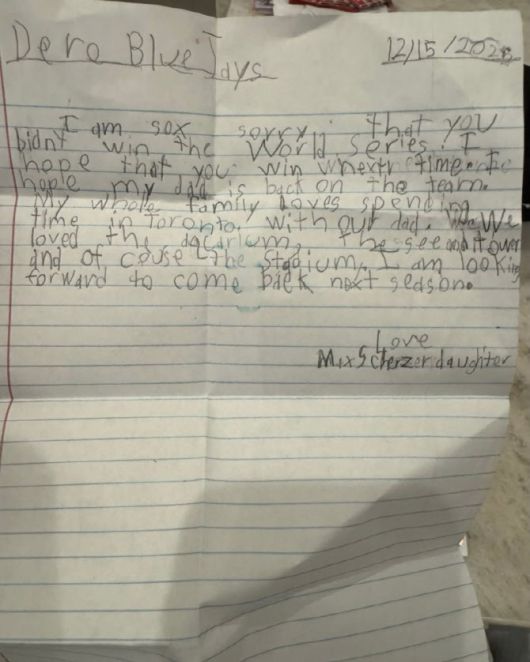 Dero Blue Jays
12/15/2025
I am sox sorry that you
bidn't win the World series. I
hope that you win time
hople my dad is back on the team.
My whole family loves spending
time in Toronto with our dad. We
loved the dqcarium, the seeanditower
and of couse the stadium. I am looking
forward to come back next season.
Love
Max Scherzer daughter